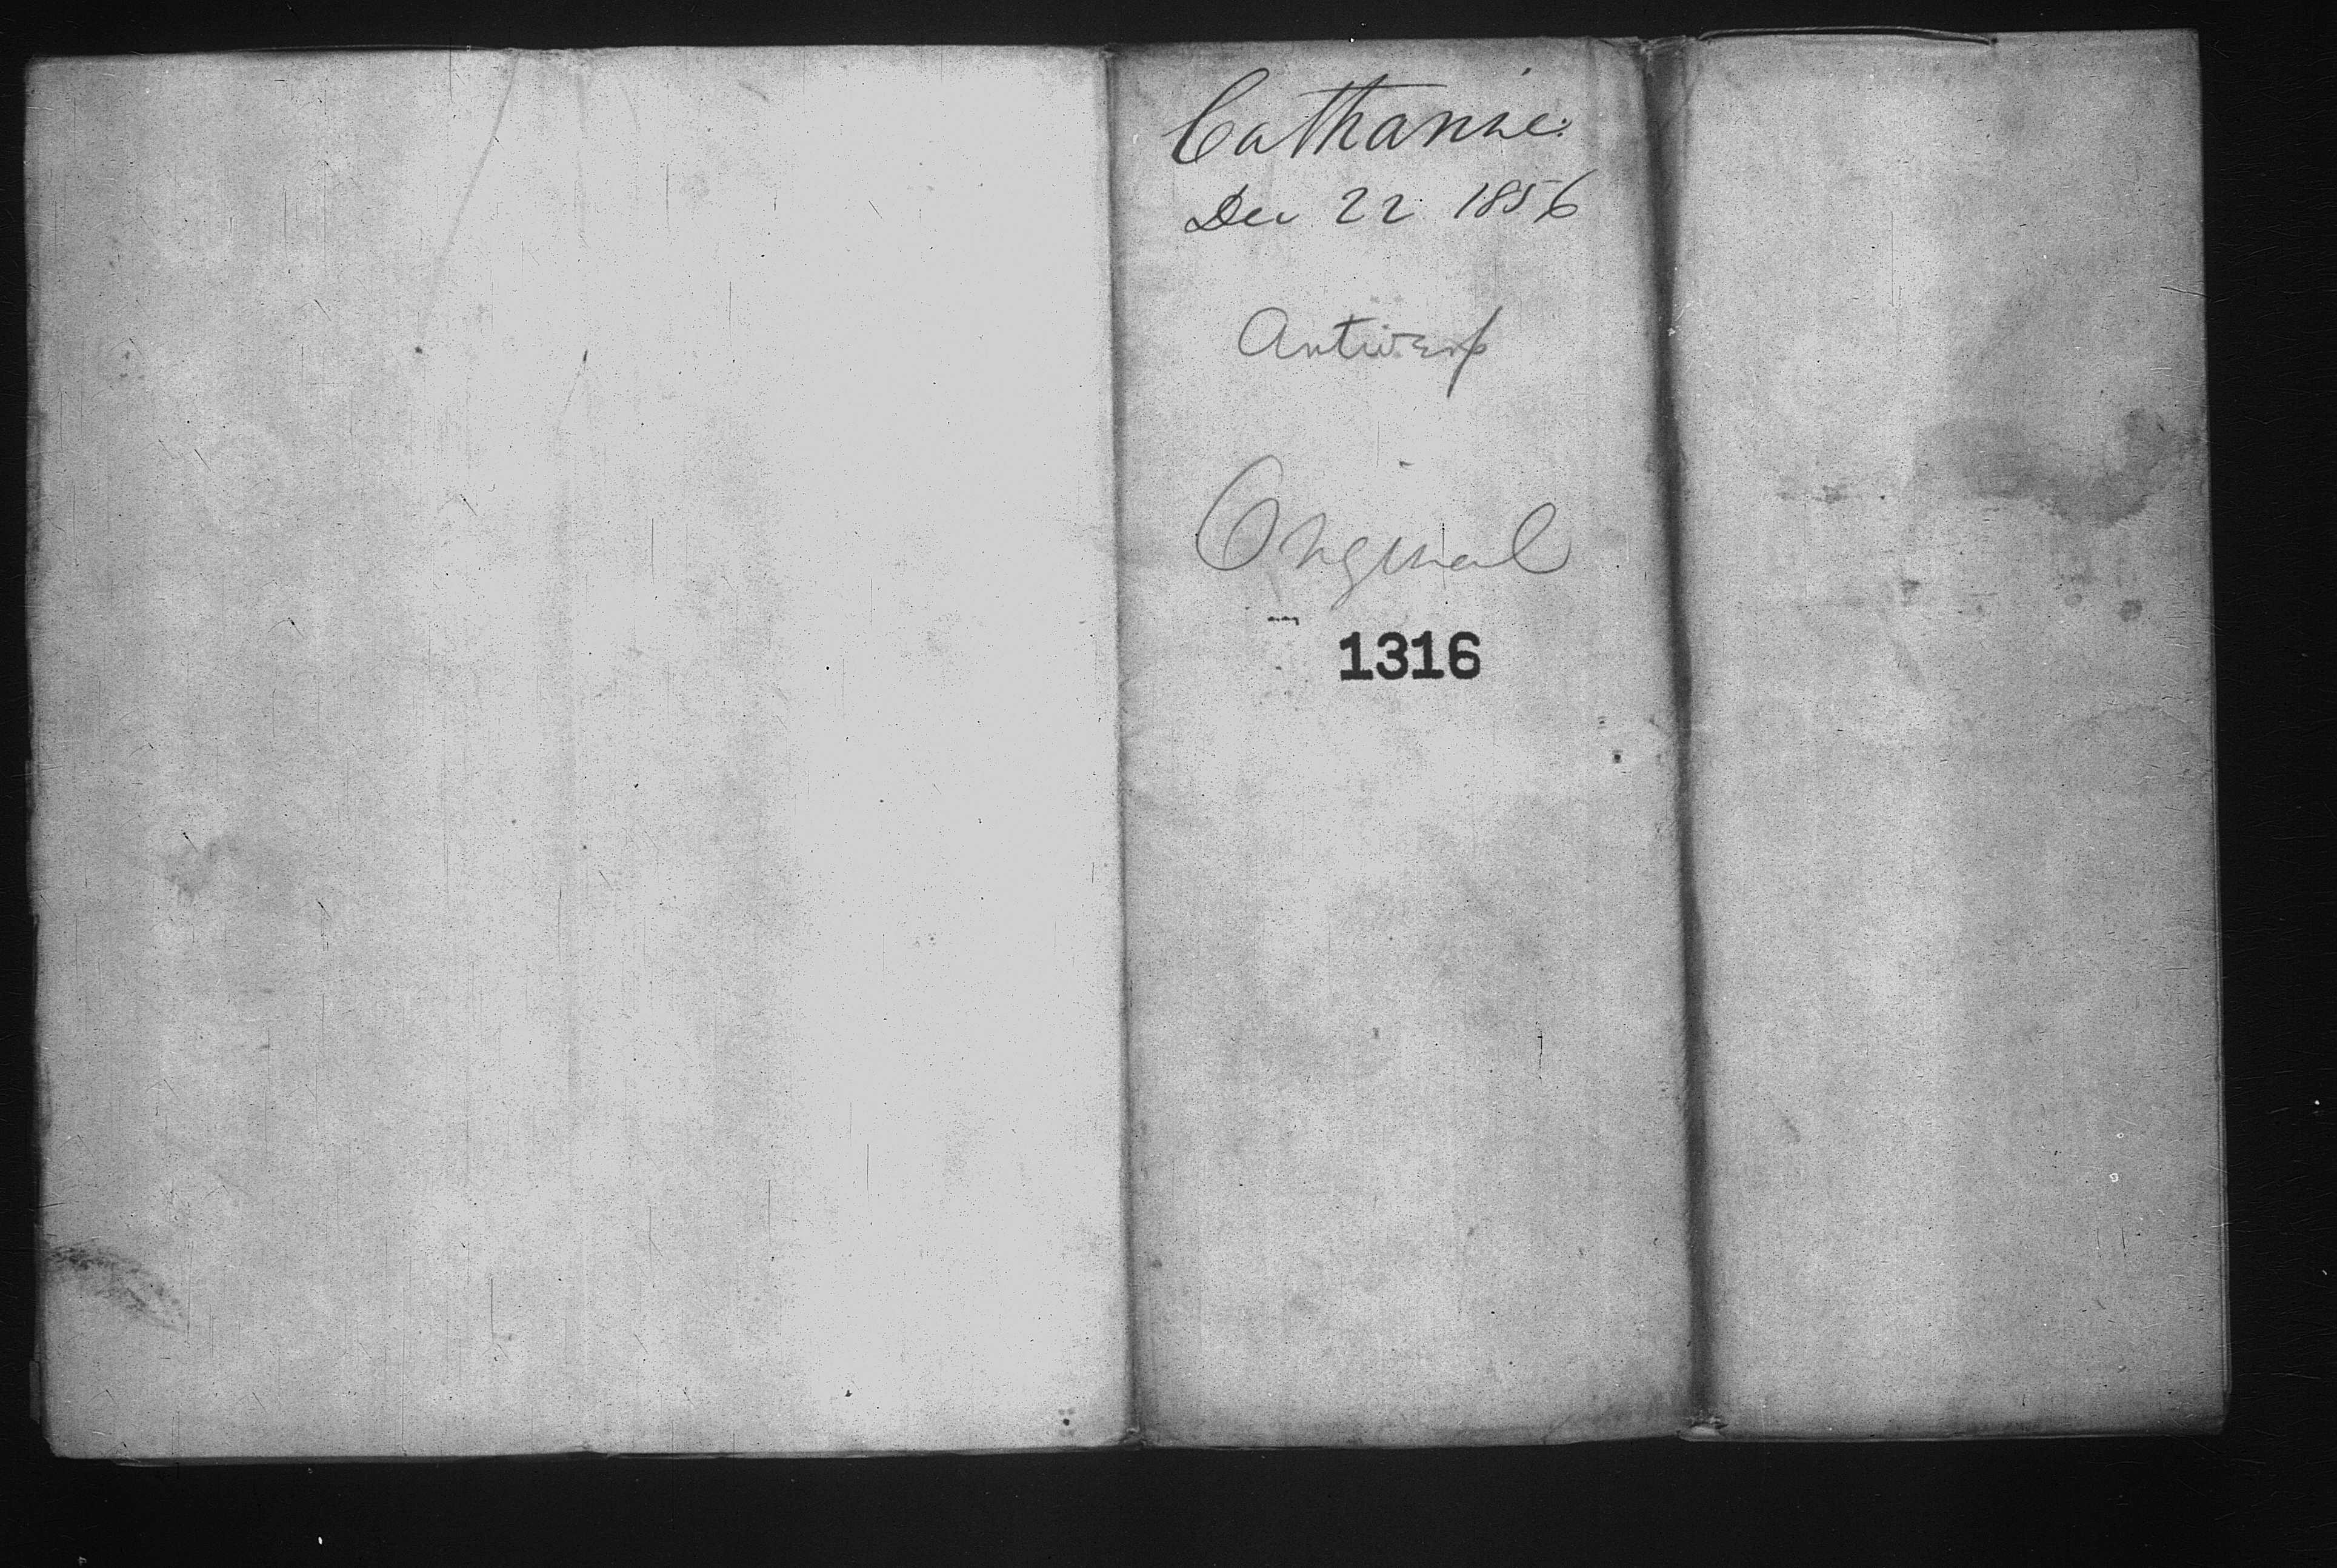 Catharine
Dec 22 1856
Antwerp
Original
1316